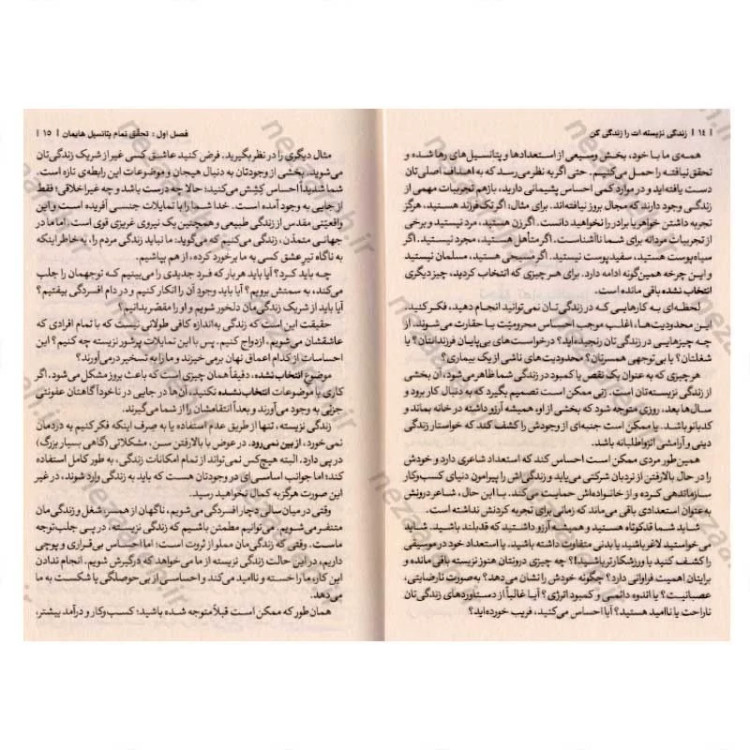 ۱٤ | زندگی نزیسته ات را زندگی کن
همه‌ی ما با خود، بخش وسیعی از استعدادها و پتانسیل‌های رها شده و
تحقق نیافته را حمل می‌کنیم. حتی اگر به نظر می‌رسد که به اهداف اصلی‌تان
دست یافته‌اید و در موارد کمی احساس پشیمانی دارید، بازهم تجربیات مهمی از
زندگی وجود دارند که مجال بروز نیافته‌اند. برای مثال؛ اگر تک‌فرزند هستید، هرگز
تجربه داشتن خواهر یا برادر را نخواهید دانست. اگر زن هستید، مرد نیستید و برخی
از تجربیات مردانه برای شما ناآشناست. اگر متأهل هستید، مجرد نیستید. اگر
سیاه‌پوست هستید، سفیدپوست نیستید. اگر مسیحی هستید، مسلمان نیستید
و این چرخه همین‌گونه ادامه دارد. برای هر چیزی که انتخاب کردید، چیز دیگری
انتخاب نشده باقی مانده است.
لحظه‌ای به کارهایی که در زندگی‌تان نمی‌توانید انجام دهید، فکر کنید.
این محدودیت‌ها، اغلب موجب احساس محرومیّت یا حقارت می‌شوند. از
چه چیزهایی در زندگی‌تان رنجیده‌اید؟ درخواست‌های بی‌پایان فرزندانتان؟ یا
شغلتان؟ یا بی‌توجهی همسرتان؟ محدودیت‌های ناشی از یک بیماری؟
هر چیزی که به عنوان یک نقص یا کمبود در زندگی شما ظاهر می‌شود، آن بخشی
از زندگی نزیسته‌تان است. زنی ممکن است تصمیم بگیرد که به دنبال کار برود و
سال‌ها بعد، روزی متوجه شود که بخشی از او، همیشه آرزو داشته در خانه بماند و
کدبانو باشد. یا ممکن است جنبه‌ای از وجودش را کشف کند که خواستار زندگی
دینی و آرامشی انزواطلبانه باشد.
همین‌طور مردی ممکن است احساس کند که استعداد شاعری دارد و خودش
را در حال بالارفتن از نردبان شرکتی می‌یابد و زندگی‌اش را پیرامون دنیای کسب‌وکار
سازماندهی کرده و از خانواده‌اش حمایت می‌کند. با این حال، شاعر درونش
به‌عنوان استعدادی باقی می‌ماند که زمانی برای تجربه کردنش نداشته است.
شاید شما قدکوتاه هستید و همیشه آرزو داشتید که قدبلند باشید. شاید
می‌خواستید لاغر باشید یا بدنی متفاوت داشته باشید. یا استعداد خود در موسیقی
را کشف کنید یا ورزشکارتر باشید!؟ چه چیزی درونتان هنوز نزیسته باقی مانده و
برایتان اهمیت فراوانی دارد؟ چگونه خودش را نشان می‌دهد؟ به‌صورت نارضایتی،
عصبانیت؟ یا اندوه دائمی و کمبود انرژی؟ آیا غالباً از دستاوردهای زندگی‌تان
ناراحت یا ناامید هستید؟ آیا احساس می‌کنید، فریب خورده‌اید؟
فصل اول: تحقق تمام پتانسیل هایمان | ۱۵
مثال دیگری را در نظر بگیرید. فرض کنید عاشق کسی غیر از شریک زندگی‌تان
می‌شوید. بخشی از وجودتان به دنبال هیجان و موضوعات این رابطه‌ی تازه است.
شما شدیداً احساس کِشِش می‌کنید؛ حالا چه درست باشد و چه غیراخلاقی؛ فقط
از جایی به وجود آمده است. خدا شما را با تمایلات جنسی آفریده است و این
واقعیّتی مقدس از زندگی طبیعی و همچنین یک نیروی غریزی قوی است. اما ما در
جهانی متمدّن، زندگی می‌کنیم که می‌گوید: ما نباید زندگی مردم را، به خاطر اینکه
به ناگاه تیرِ عشق کسی به ما برخورد کرده، از هم بپاشیم.
چه باید کرد؟ آیا باید هر بار که فرد جدیدی را می‌بینیم که توجهمان را جلب
می‌کند، به سمتش برویم؟ آیا باید وجود آن را انکار کنیم و در دام افسردگی بیفتیم؟
آیا باید از شریک زندگی‌مان دلخور شویم و او را مقصّر بدانیم؟
حقیقت این است که زندگی به‌اندازه کافی طولانی نیست که با تمام افرادی که
عاشقشان می‌شویم، ازدواج کنیم. پس با این تمایلات پرشور زیسته چه کنیم؟ این
احساسات از کدام اعماق نهان برمی خیزند و ما را به تسخیر درمی‌آورند؟
موضوع انتخاب نشده، دقیقاً همان چیزی است که باعث بروز مشکل می‌شود. اگر
کاری با موضوعات انتخاب نشده نکنید، آن‌ها در جایی در ناخودآگاهتان عفونتی
جزئی به وجود می‌آورند و بعداً انتقامشان را از شما می‌گیرند.
زندگی نزیسته، تنها از طریق عدم استفاده یا به صِرف اینکه فکر کنیم به دردمان
نمی‌خورد، از بین نمی‌رود. در عوض با بالارفتن سن، مشکلاتی (گاهی بسیار بزرگ)
در پی دارد. البته هیچ‌کس نمی‌تواند از تمام امکانات زندگی، به طور کامل استفاده
کند؛ اما جوانب اساسی‌ای در وجودتان هست که باید به زندگی وارد شوند، در غیر
این صورت هرگز به کمال نخواهید رسید.
وقتی در میان سالی دچار افسردگی می‌شویم، ناگهان از همسر، شغل و زندگی‌مان
متنفر می‌شویم. می‌توانیم مطمئن باشیم که زندگی نزیسته، در پی جلب‌توجه
ماست. وقتی که زندگی‌مان مملو از ثروت است؛ اما احساس بی‌قراری و پوچی
داریم، در این حالت زندگی نزیسته از ما می‌خواهد که درگیرش شویم. انجام ندادن
این کار، ما را خسته و ناامید می‌کند و احساسی از بی‌حوصلگی یا شکست به ما
می‌دهد.
همان طور که ممکن است قبلاً متوجه شده باشید؛ کسب‌وکار و درآمد بیشتر،